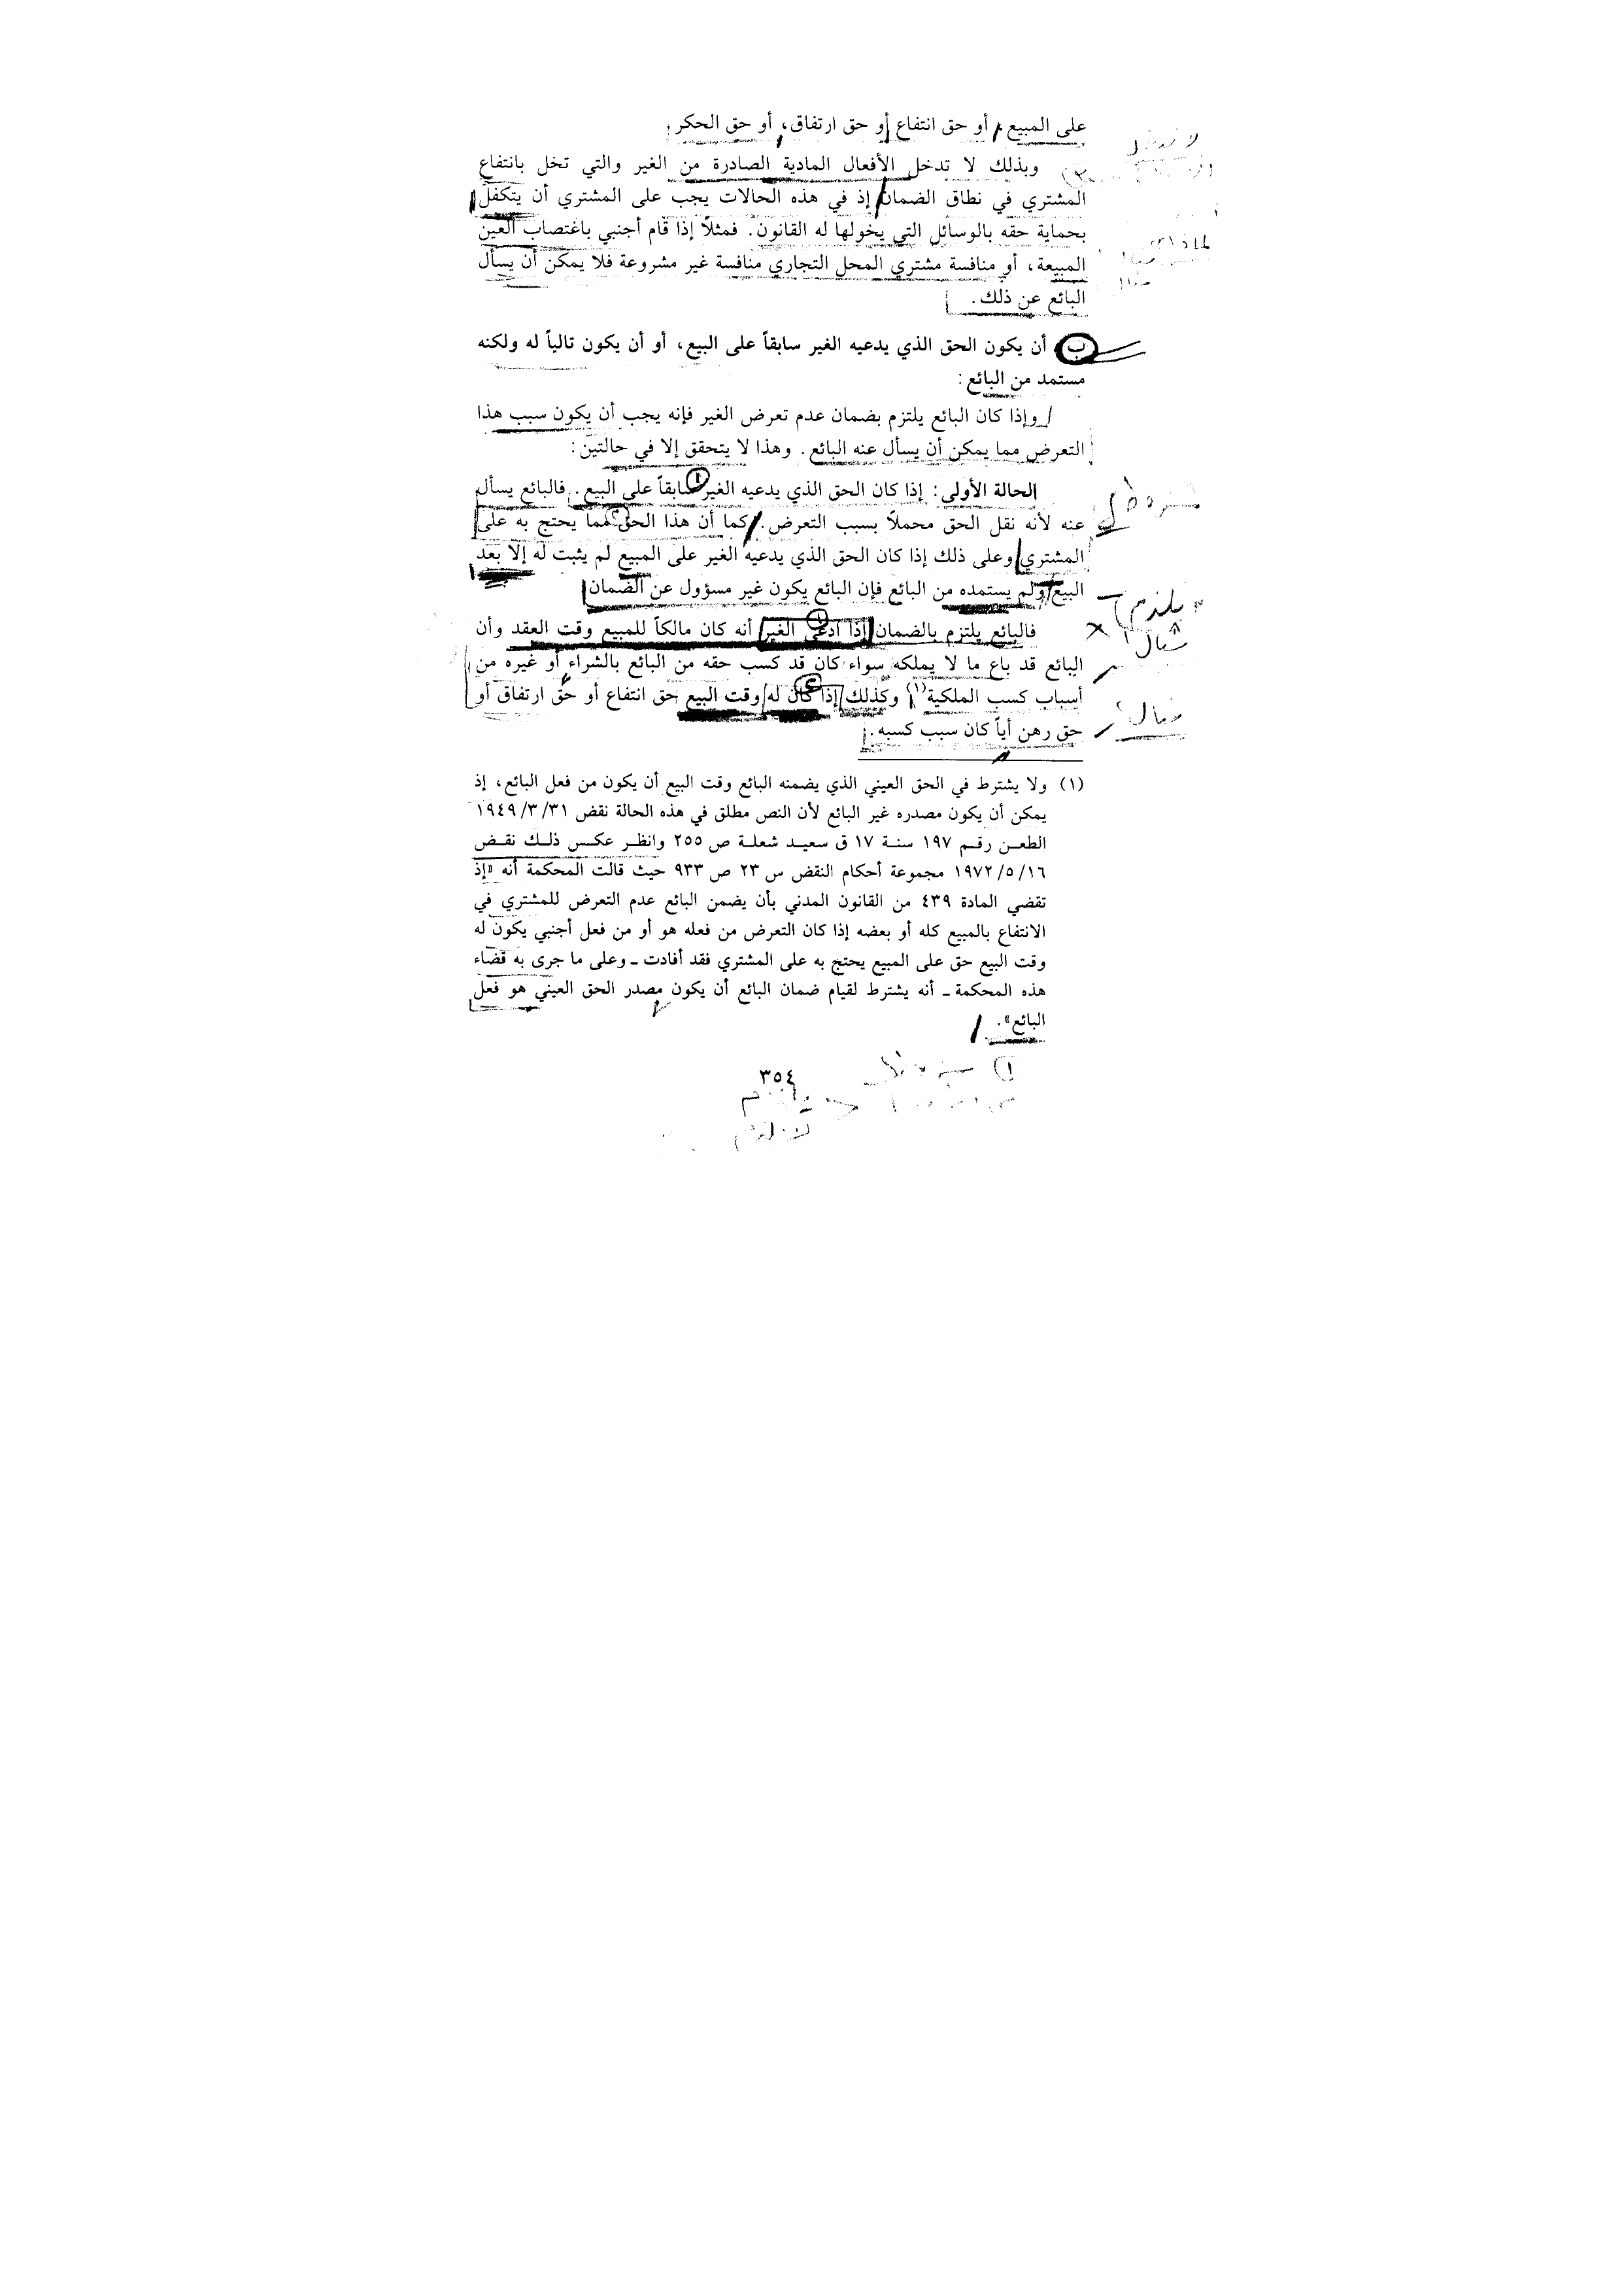 على المبيع، أو حق انتفاع أو حق ارتفاق، أو حق الحكر.
وبذلك لا تدخل الأفعال المادية الصادرة من الغير والتي تخل بانتفاع
المشتري في نطاق الضمان إذ في هذه الحالات يجب على المشتري أن يتكفل
بحماية حقه بالوسائل التي يخولها له القانون. فمثلاً إذا قام أجنبي باغتصاب العين
المبيعة، أو منافسة مشتري المحل التجاري منافسة غير مشروعة فلا يمكن أن يسأل
البائع عن ذلك.
ب أن يكون الحق الذي يدعيه الغير سابقاً على البيع، أو أن يكون تالياً له ولكنه
مستمد من البائع:
وإذا كان البائع يلتزم بضمان عدم تعرض الغير فإنه يجب أن يكون سبب هذا
التعرض مما يمكن أن يسأل عنه البائع. وهذا لا يتحقق إلا في حالتين:
الحالة الأولى: إذا كان الحق الذي يدعيه الغير سابقاً على البيع. فالبائع يسأل
عنه لأنه نقل الحق محملاً بسبب التعرض. كما أن هذا الحق مما يحتج به على
المشتري وعلى ذلك إذا كان الحق الذي يدعيه الغير على المبيع لم يثبت له إلا بعد
البيع ولم يستمده من البائع فإن البائع يكون غير مسؤول عن الضمان
فالبائع يلتزم بالضمان إذا ادعى الغير أنه كان مالكاً للمبيع وقت العقد وأن
البائع قد باع ما لا يملكه سواء كان قد كسب حقه من البائع بالشراء أو غيره من
أسباب كسب الملكية(١) وكذلك إذا كان له وقت البيع حق انتفاع أو حق ارتفاق أو
حق رهن أياً كان سبب كسبه.
(١) ولا يشترط في الحق العيني الذي يضمنه البائع وقت البيع أن يكون من فعل البائع، إذ
يمكن أن يكون مصدره غير البائع لأن النص مطلق في هذه الحالة نقض ١٩٤٩/٣/٣١
الطعن رقم ١٩٧ سنة ١٧ ق سعيد شعلة ص ٢٥٥ وانظر عكس ذلك نقض
١٩٧٢/٥/١٦ مجموعة أحكام النقض س ٢٣ ص ٩٣٣ حيث قالت المحكمة أنه «إذ
تقضي المادة ٤٣٩ من القانون المدني بأن يضمن البائع عدم التعرض للمشتري في
الانتفاع بالمبيع كله أو بعضه إذا كان التعرض من فعله هو أو من فعل أجنبي يكون له
وقت البيع حق على المبيع يحتج به على المشتري فقد أفادت ـ وعلى ما جرى به قضاء
هذه المحكمة ـ أنه يشترط لقيام ضمان البائع أن يكون مصدر الحق العيني هو فعل
البائع».
٣٥٤